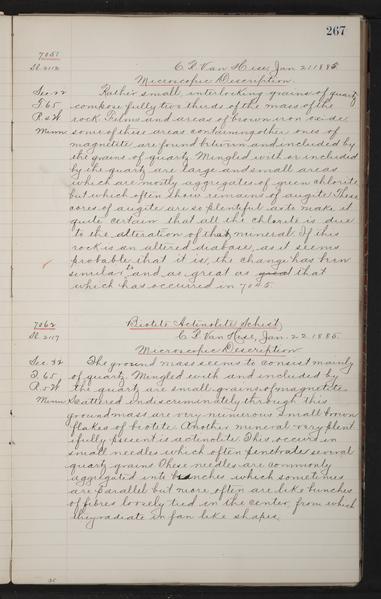 267
7051
Sl. 2112 C. R. Van Hise, Jan. 21 1885
Microscopic Description.
Sec. 22 Rather small interlocking grains of quartz
T. 65 compose fully two thirds of the mass of the
R. 5 W rock. Films and areas of brown iron oxide
Minn some of these areas containing other ones of
magnetite are found between and included by
the grains of quartz. Mingled with or included
by the quartz are large and small areas
which are mostly aggregates of green chlorite
but which often show remains of augite. These
cores of augite are so plentiful as to make it
quite certain that all the chlorite is due
to the alteration of that mineral. If this
rock is an altered diabase, as it seems
probable that it is, the change has been
similar to and as great as good that
which has occurred in 7045.
7062 Biotite Actinolite Schist,
Sl. 2117 C. R. Van Hise, Jan. 22 1885.
Microscopic Description
Sec. 32 The ground mass seems to consist mainly
T. 65 of quartz. Mingled with and included by
R. 5 W the quartz are small grains of magnetite
Minn Scattered indiscriminately through this
groundmass are very numerous small brown
flakes of biotite. Another mineral very plent-
ifully present is actinolite. This occurs in
small needles which often penetrate several
quartz grains. These needles are commonly
aggregated into bunches which sometimes
are parallel but more often are like bunches
of fibres loosely tied in the center from which
they radiate in fan like shapes.